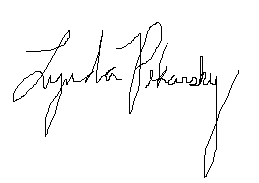 Lynda Pekarsky